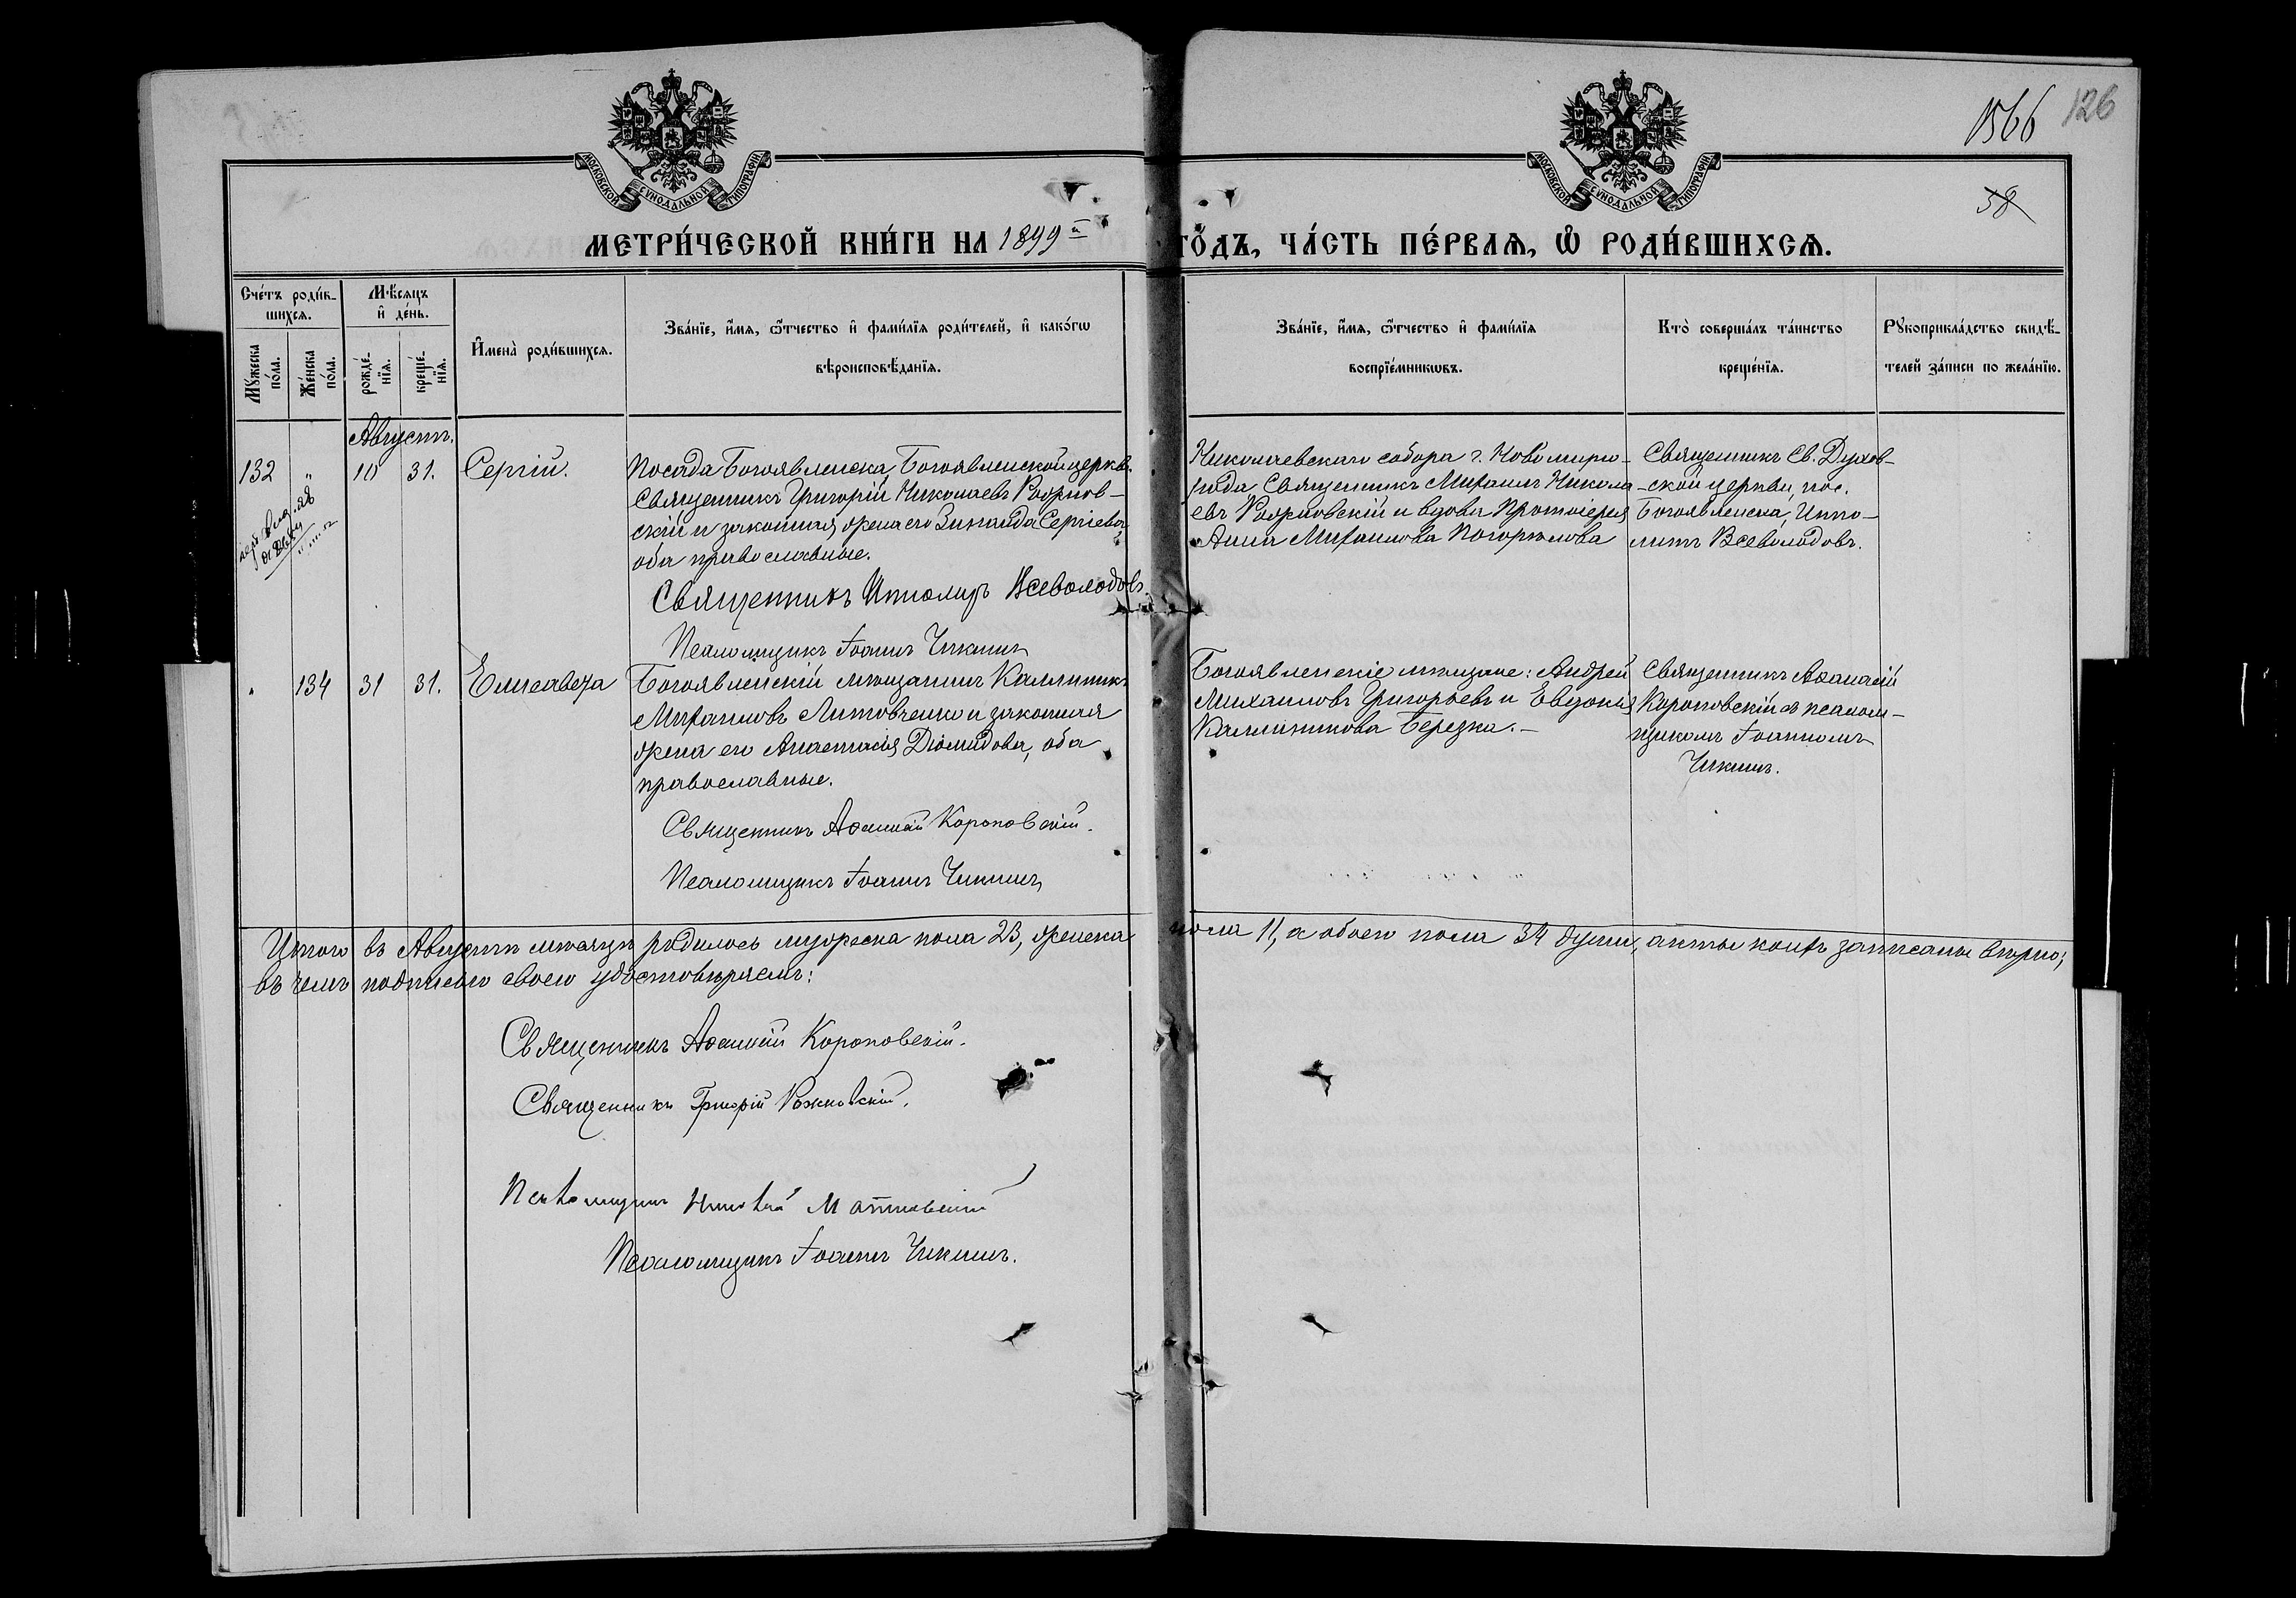 1566 126
МОСКОВСКОЙ СѴНОДАЛЬНОЙ ТИПОГРАФІИ
МОСКОВСКОЙ СѴНОДАЛЬНОЙ ТИПОГРАФІИ
38
МЕТРИ́ЧЕСКОЙ КНИ́ГИ НА 1899й ГО́ДЪ, ЧА́СТЬ ПЕ́РВАѦ, Ѽ РОДИ́ВШИХСѦ.
Сче́тъ роди́в-
шихсѧ.
Мѣ́сѧцъ
и҆ де́нь.
Мꙋ́жеска
по́ла.
Же́нска
по́ла.
рожде́-
нїѧ.
креще́-
нїѧ.
И҆мена̀ роди́вшихсѧ.
Зва́нїе, и҆́мѧ, ѻ҆́тчество и҆ фами́лїѧ роди́телей, и҆ како́гѡ
вѣроисповѣ́данїѧ.
Зва́нїе, и҆́мѧ, ѻ҆́тчество и҆ фами́лїѧ
воспрїе́мникѡвъ.
Кто̀ соверша́лъ та́инство
креще́нїѧ.
Рꙋкоприкла́дство свидѣ́-
телей за́писи по жела́нїю.
Августъ.
132 " 10 31. Сергій.
Посада Богоявленска, Богоявленской церкв.
Священникъ Григорій Николаевъ Рожнов-
скій и законная жена его Зинаида Сергіева,
оба православные.
Священникъ Ипполитъ Всеволодовъ.
Псаломщикъ Іоаннъ Чикинъ
Николаевскаго собора г. Новомирго-
рода Священникъ Михаилъ Никола-
евъ Рожновскій и вдова Протоіерея
Анна Михаилова Погорѣлова
Священникъ Св. Духов-
ской церкви, пос.
Богоявленска, Иппо-
литъ Всеволодовъ.
" 134 31 31. Елисавета
Богоявленскій мѣщанинъ Каллиникъ
Михаиловъ Литовченко и законная
жена его Анастасія Діомидова, оба
православные.
Священникъ Аѳанасій Короповскій.
Псаломщикъ Іоаннъ Чикинъ
Богоявленскіе мѣщане: Андрей
Михаиловъ Григорьевъ и Евдокія
Каллиникова Березка. –
Священникъ Аѳанасій
Короповскій съ псалом-
щикомъ Іоанномъ
Чикинъ.
Итого въ Августѣ мѣсяцѣ родилось мужеска пола 23, женска пола 11, а обоего пола 34 души, акты коихъ записаны вѣрно;
въ чемъ подписью своею удостовѣряемъ:
Священникъ Аѳанасій Короповскій.
Священникъ Григорій Рожновскій.
Псаломщикъ
Псаломщикъ Іоаннъ Чикинъ.